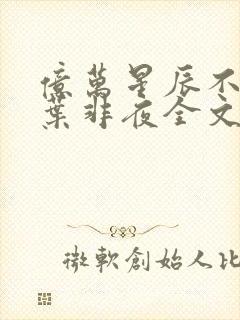 億萬星辰不
葉非夜全文
微軟創始人比